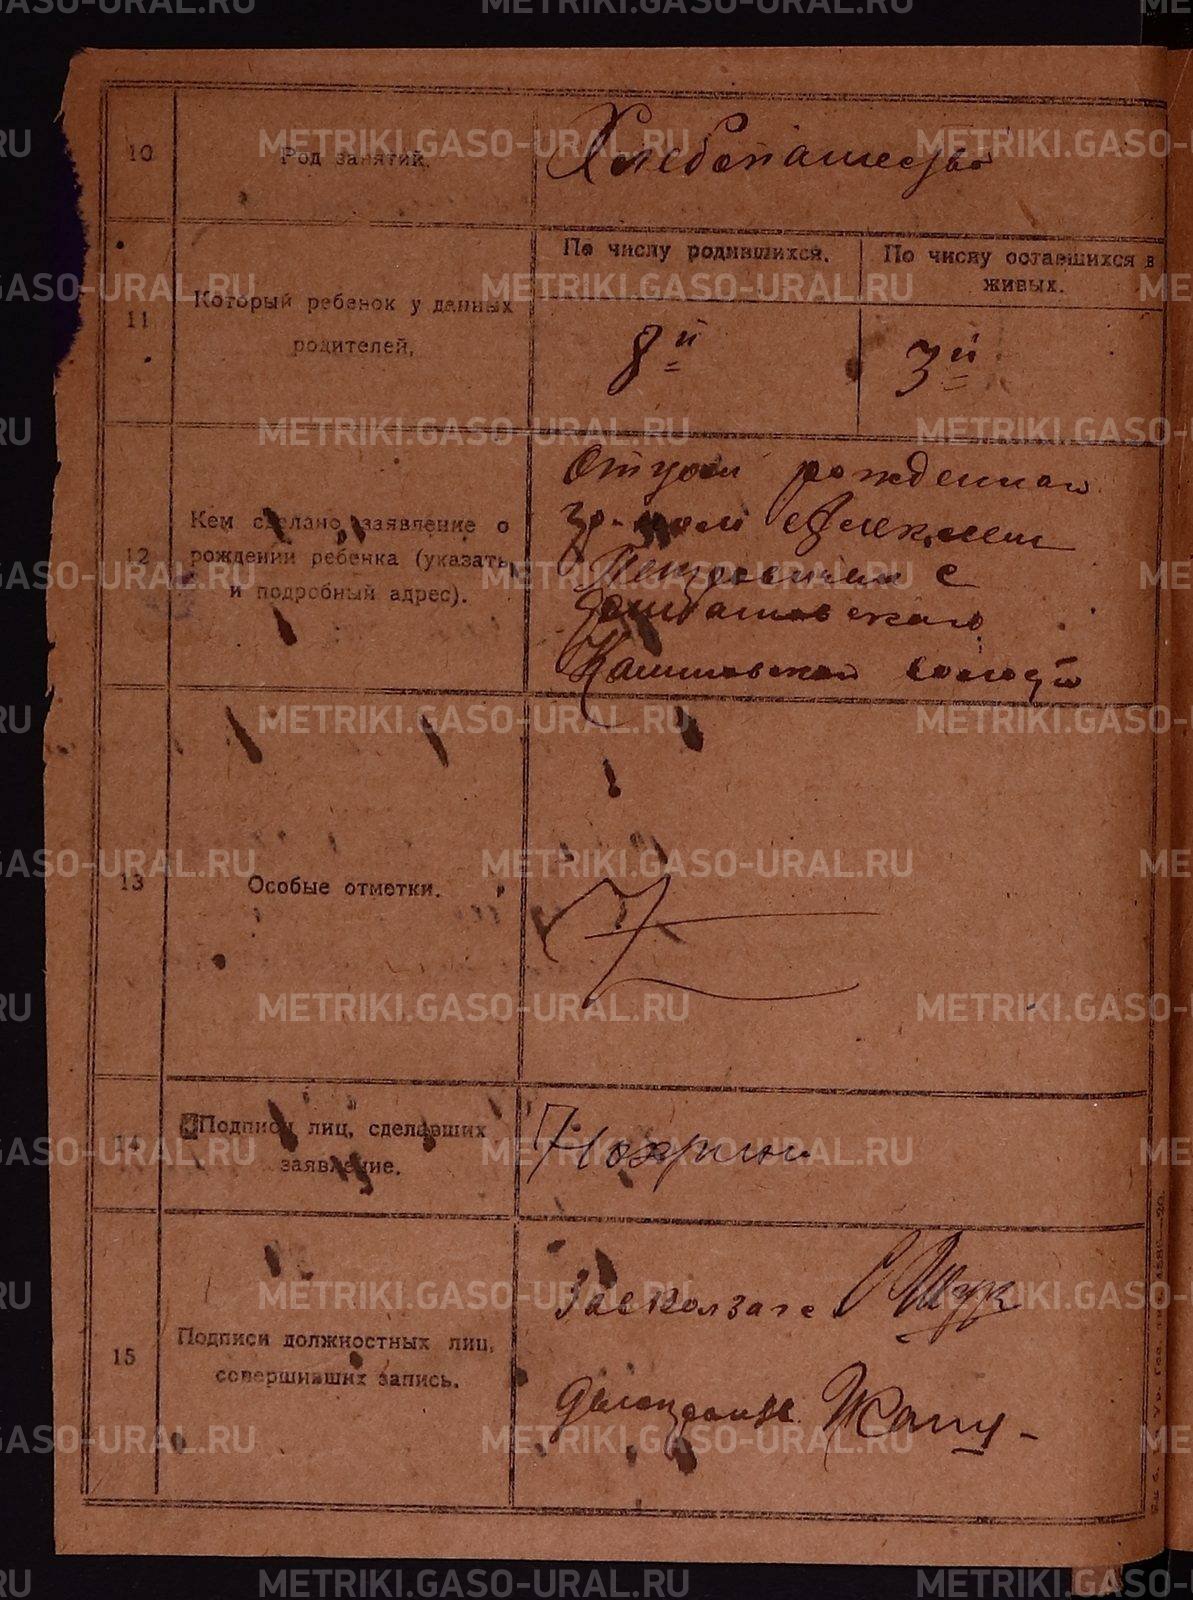 10
Род занятий.
Хлебопашество
11
Который ребенок у данных
родителей.
По числу родившихся.
8й
По числу оставшихся в
живых.
3й
12
Кем сделано заявление о
рождении ребенка (указать
и подробный адрес).
Отцом рожденнаго
Алексеем
Петровичем с
Камышевской волости
13
Особые отметки.
14
Подписи лиц, сделавших
заявление.
Нохрин
15
Подписи должностных лиц,
совершивших запись.
Зав Колзагс
Делопроизв.
METRIKI.GASO-URAL.RU